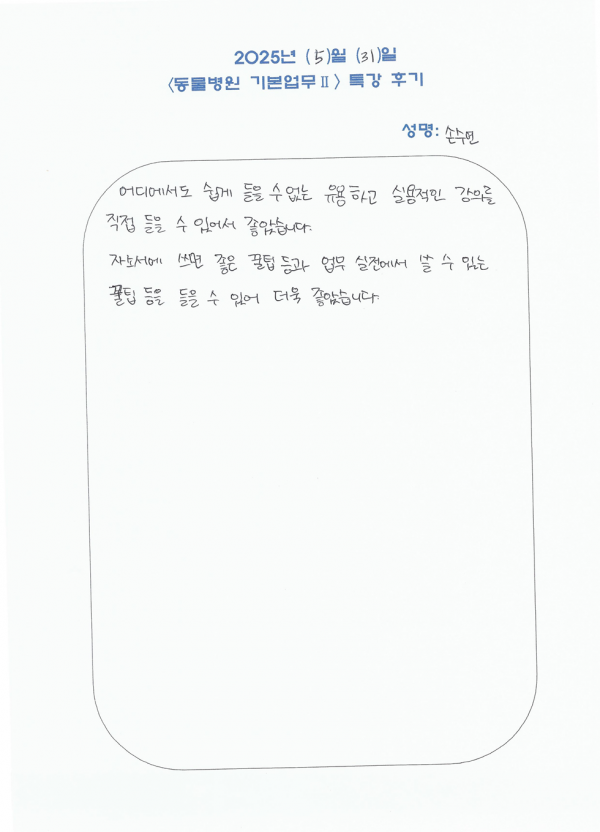 2025년 (5)월 (31)일
<동물병원 기본업무Ⅱ> 특강 후기
성명: 손수연
어디에서도 쉽게 들을 수 없는 유용하고 실용적인 강의를
직접 들을 수 있어서 좋았습니다.
자소서에 쓰면 좋은 꿀팁 등과 업무 실전에서 쓸 수 있는
꿀팁 등을 들을 수 있어 더욱 좋았습니다.